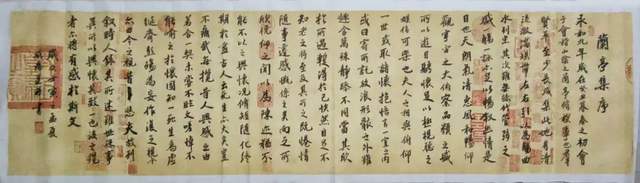 蘭亭集序
永和九年歲在癸丑暮春之初會
于會稽山陰之蘭亭脩稧事也羣
賢畢至少長咸集此地有
流激湍暎帶左右引以為流觴曲
水列坐其次雖無絲竹管弦之
盛一觴一詠亦足以暢叙幽情是
日也天朗氣清惠風和暢仰
觀宇宙之大俯察品類之盛
所以遊目騁懷足以極視聽之
娛信可樂也夫人之相與俯仰
一世或取諸懷抱悟言一室之內
或因寄所託放浪形骸之外雖
趣舍萬殊靜躁不同當其欣
於所遇輙得於己快然自足不
知老之將至及其所之既惓情
隨事遷感慨係之矣向之所
欣俛仰之閒以為陳迹猶不
能不以之興懷況脩短隨化終
期於盡古人云死生亦大矣豈
不痛哉每攬昔人興感之由
若合一契未嘗不臨文嗟悼不
能喻之於懷固知一死生為虛
誕齊彭殤為妄作後之視今
亦由今之視昔悲夫故列
叙時人錄其所述雖世殊事
異所以興懷其致一也後之攬
者亦將有感於斯文